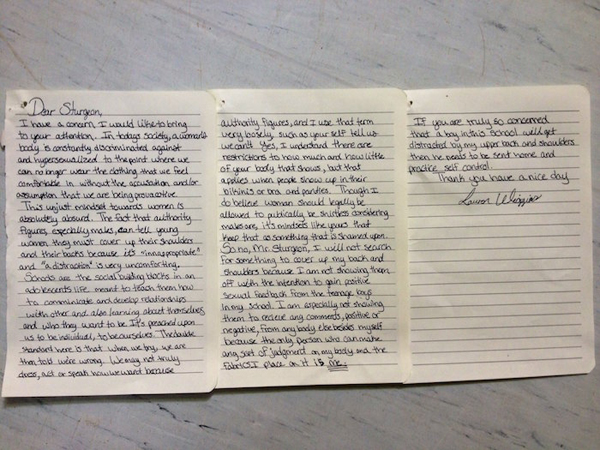 Dear Sturgeon,
I have a concern I would like to bring
to your attention. In todays society, a woman's
body is constantly discriminated against
and hypersexualized to the point where we
can no longer wear the clothing that we feel
comfortable in without the accusation and/or
assumption that we are being provocative.
This unjust mindset towards women is
absolutely absurd. The fact that authority
figures, especially males, can tell young
women they must cover up their shoulders
and their backs because it's "innapropriate"
and "a distraction" is very uncomforting.
Schools are the social building blocks in an
adolescents life meant to teach them how
to communicate and develop relationships
with other and also learning about themselves
and who they want to be. It's preached upon
us to be individual, to be ourselves. The double
standard here is that when we try, we are
then told we're wrong. We may not truly
dress, act or speak how we want because
authority figures, and I use that term
very loosely, such as your self tell us
we can't. Yes, I understand there are
restrictions to how much and how little
of your body that shows, but that
applies when people show up in their
bikinis or bra and panties. Though I
do believe woman should legally be
allowed to publically be shirtless considering
males are, it's mindsets like yours that
keep that as something that is shamed upon.
So no, Mr. Sturgeon, I will not search
for something to cover up my back and
shoulders because I am not showing them
off with the intention to gain positive
sexual feedback from the teenage boys
in my school. I am especially not showing
them to recieve any comments, positive or
negative, from any body else besides myself
because the only person who can make
any sort of judgment on my body and the
fabrics I place on it is me.
If you are truly so concerned
that a boy in this school will get
distracted by my upper back and shoulders
then he needs to be sent home and
practice self control.
Thank you have a nice day
Lauren Wiggins